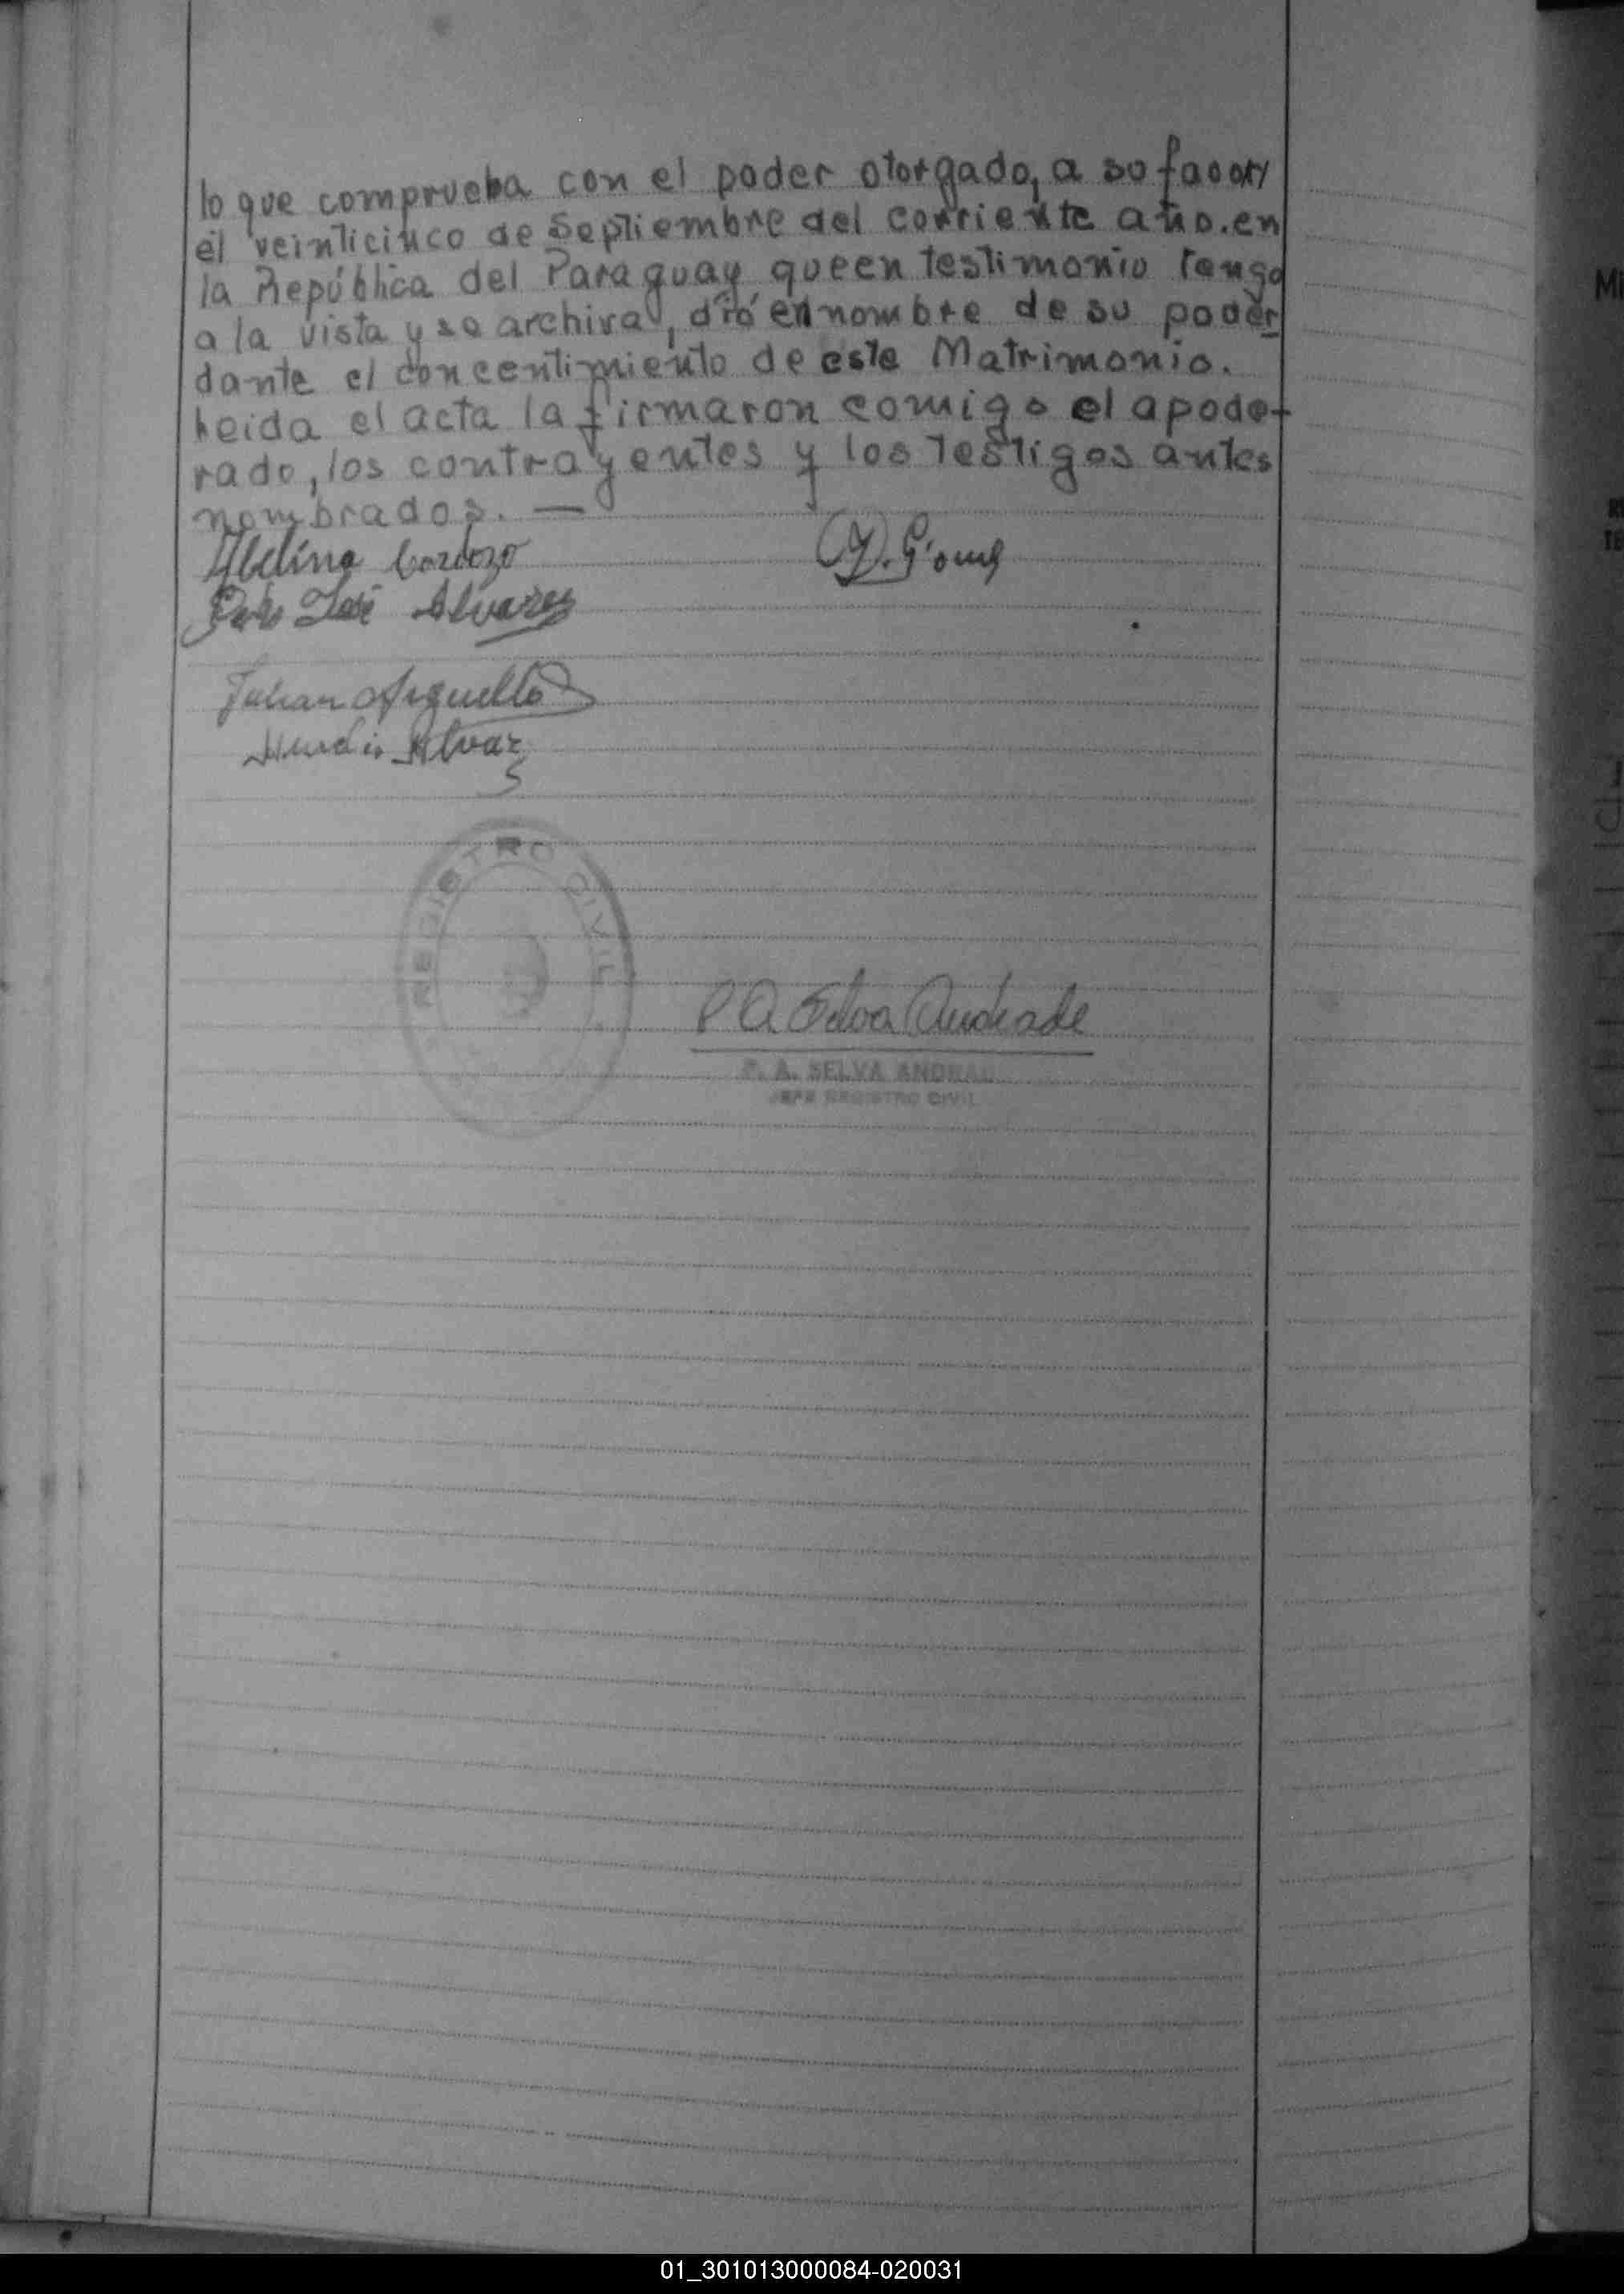 lo que comprueba con el poder otorgado, a su favor
el veinticinco de Septiembre del corriente año. en
la República del Paraguay que en testimonio tengo
a la vista y se archiva, dió en nombre de su poder
dante el concentimiento de este Matrimonio.
Leida el acta la firmaron comigo el apode-
rado, los contrayentes y los testigos antes
nombrados. —
Abelina Cardozo
José Alvarez
Julian Arguello
Alvarez
REGISTRO CIVIL
P A Selva Andrade
P. A. SELVA ANDRADE
JEFE REGISTRO CIVIL
01_301013000084-020031